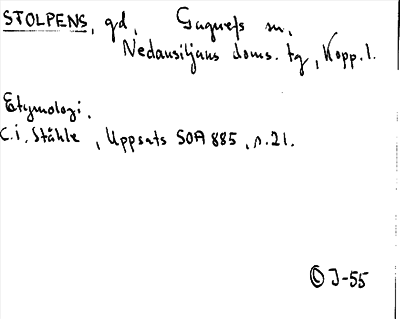 STOLPENS, gd, Gagnefs sn,
Nedansiljans doms. tg, Kopp.l.
Etymologi.
C.I. Ståhle, Uppsats SOA 885, s.21.
© J-55